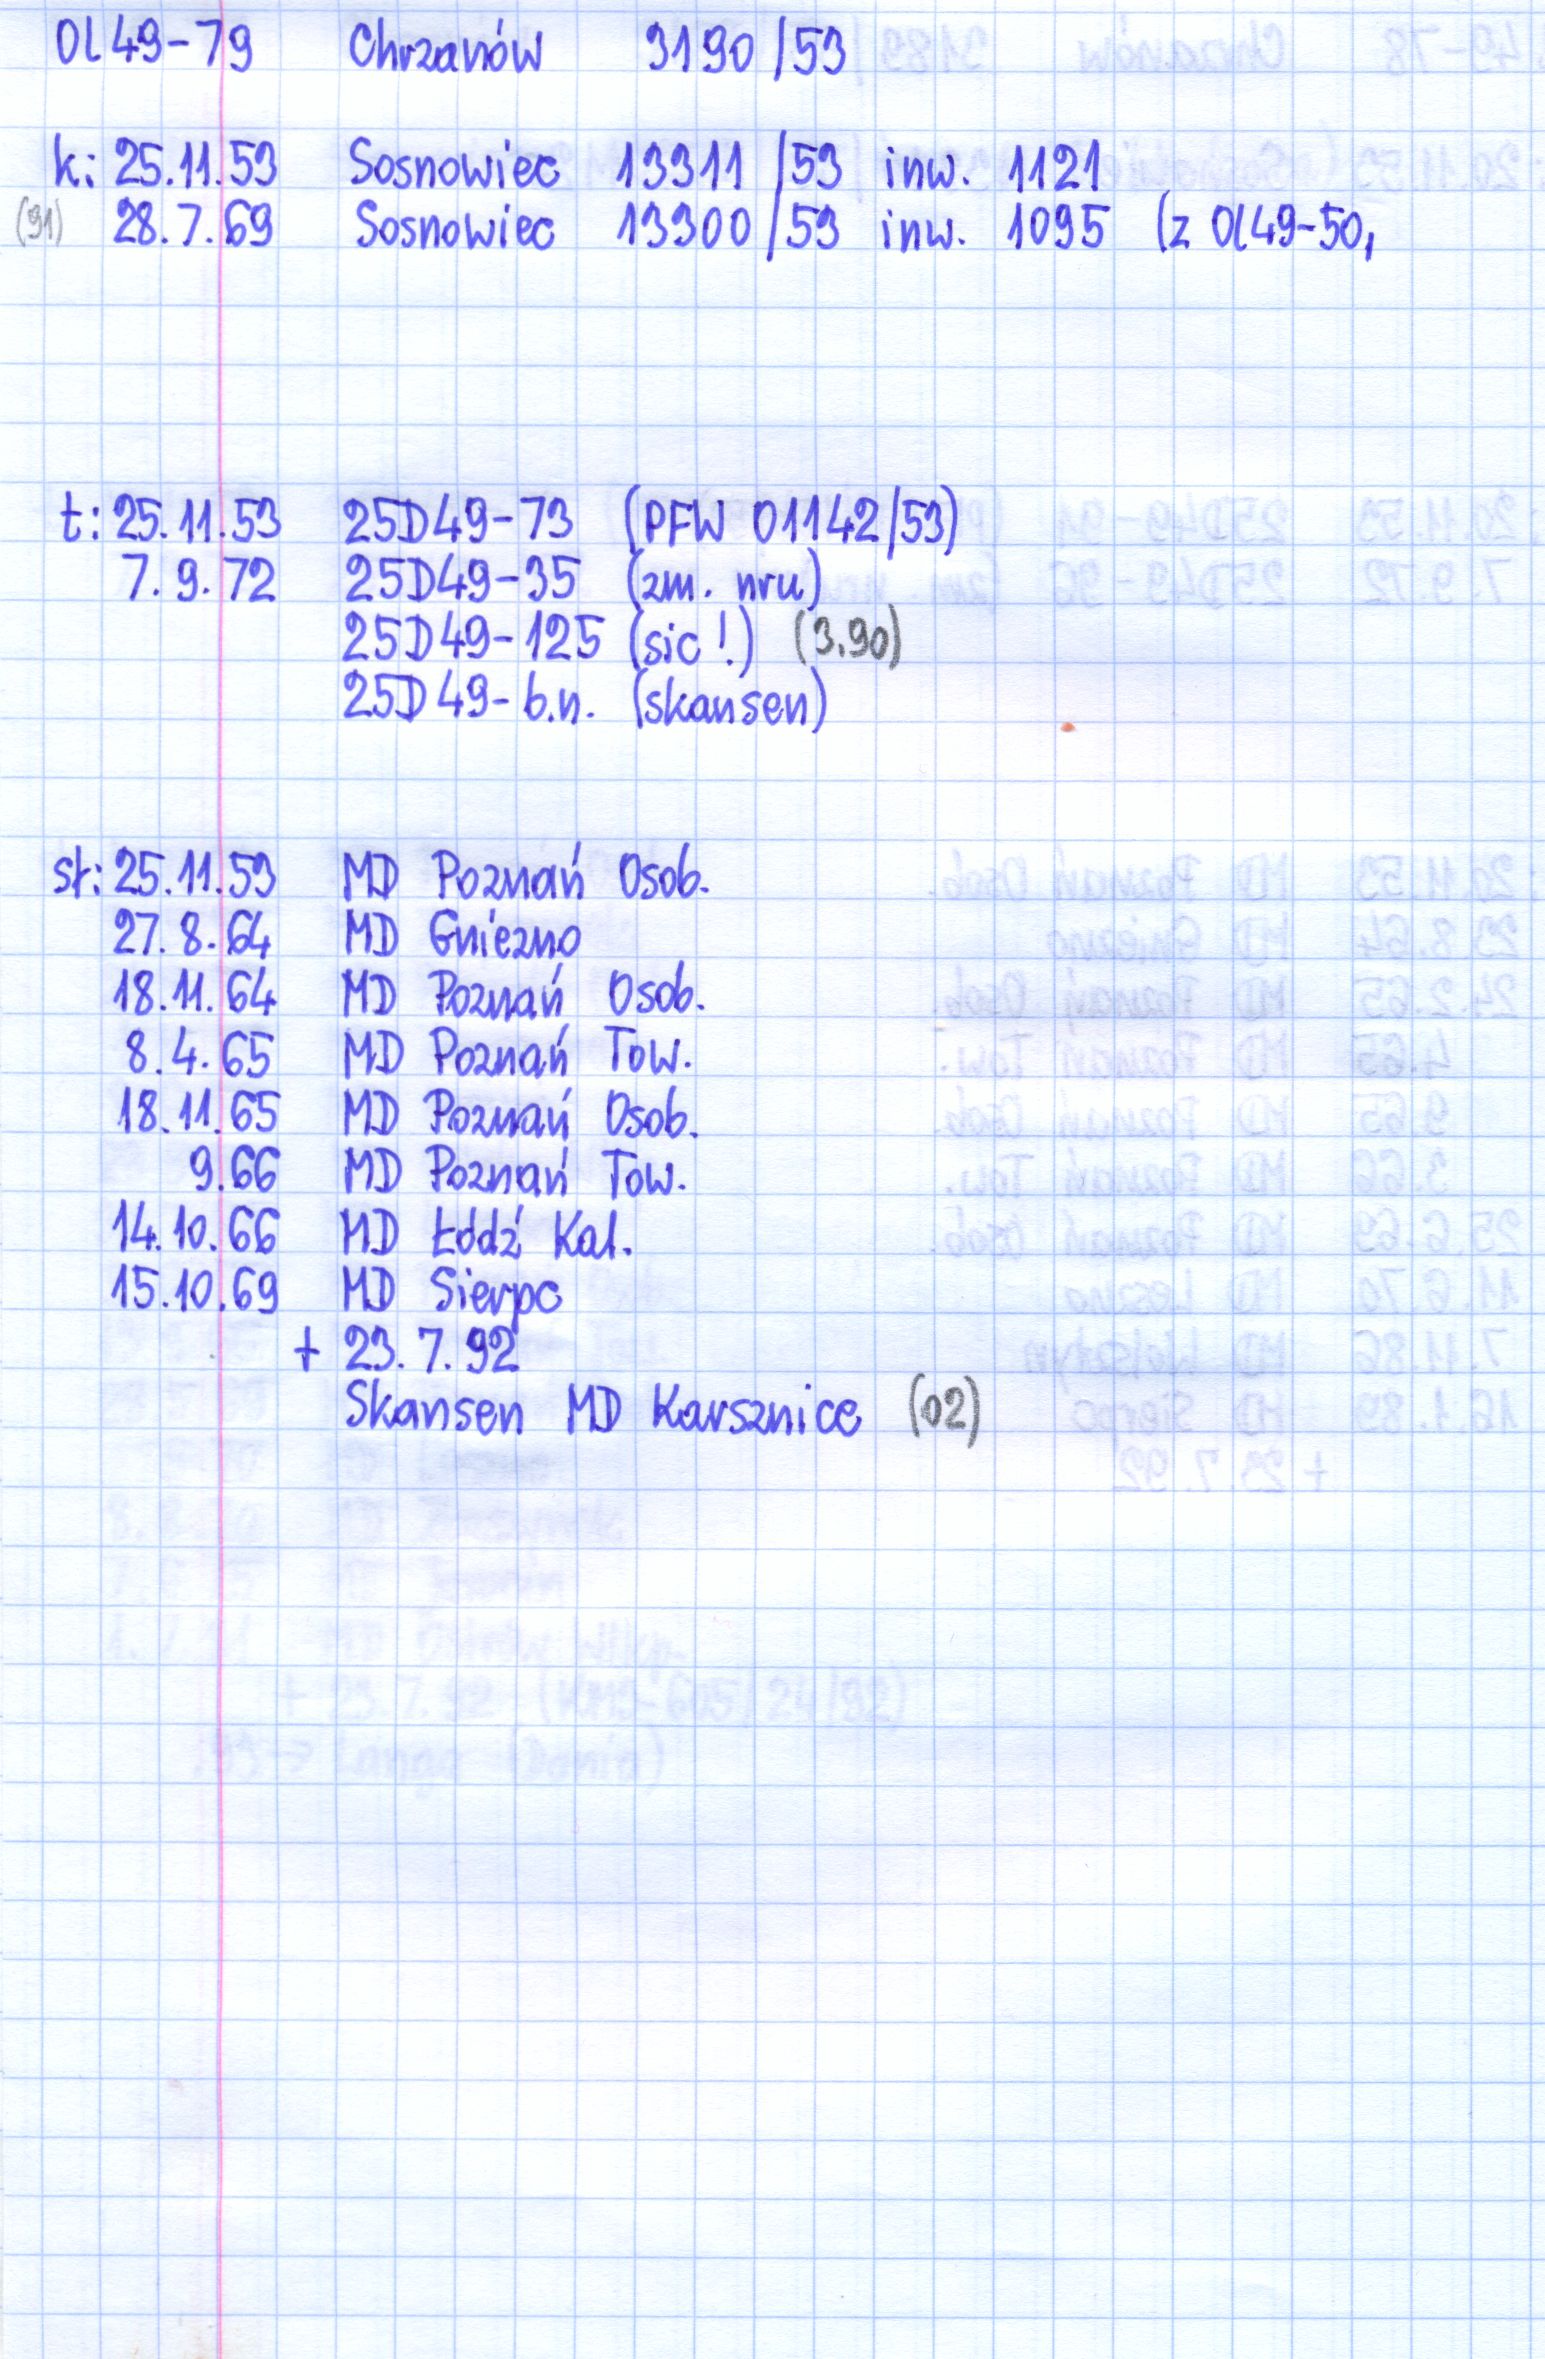 Ol49-79 Chrzanów 3190/53
k: 25.11.53 Sosnowiec 13311/53 inw. 1121
(91) 28.7.69 Sosnowiec 13300/53 inw. 1095 (z Ol49-50,
t: 25.11.53 25D49-73 (PFW 01142/53)
7.9.72 25D49-35 (zm. nru)
25D49-125 (sic!) (3.90)
25D49-b.n. (skansen)
st: 25.11.53 MD Poznań Osob.
27.8.64 MD Gniezno
18.11.64 MD Poznań Osob.
8.4.65 MD Poznań Tow.
18.11.65 MD Poznań Osob.
9.66 MD Poznań Tow.
14.10.66 MD Łódź Kal.
15.10.69 MD Sierpc
+ 23.7.92
Skansen MD Karsznice (02)